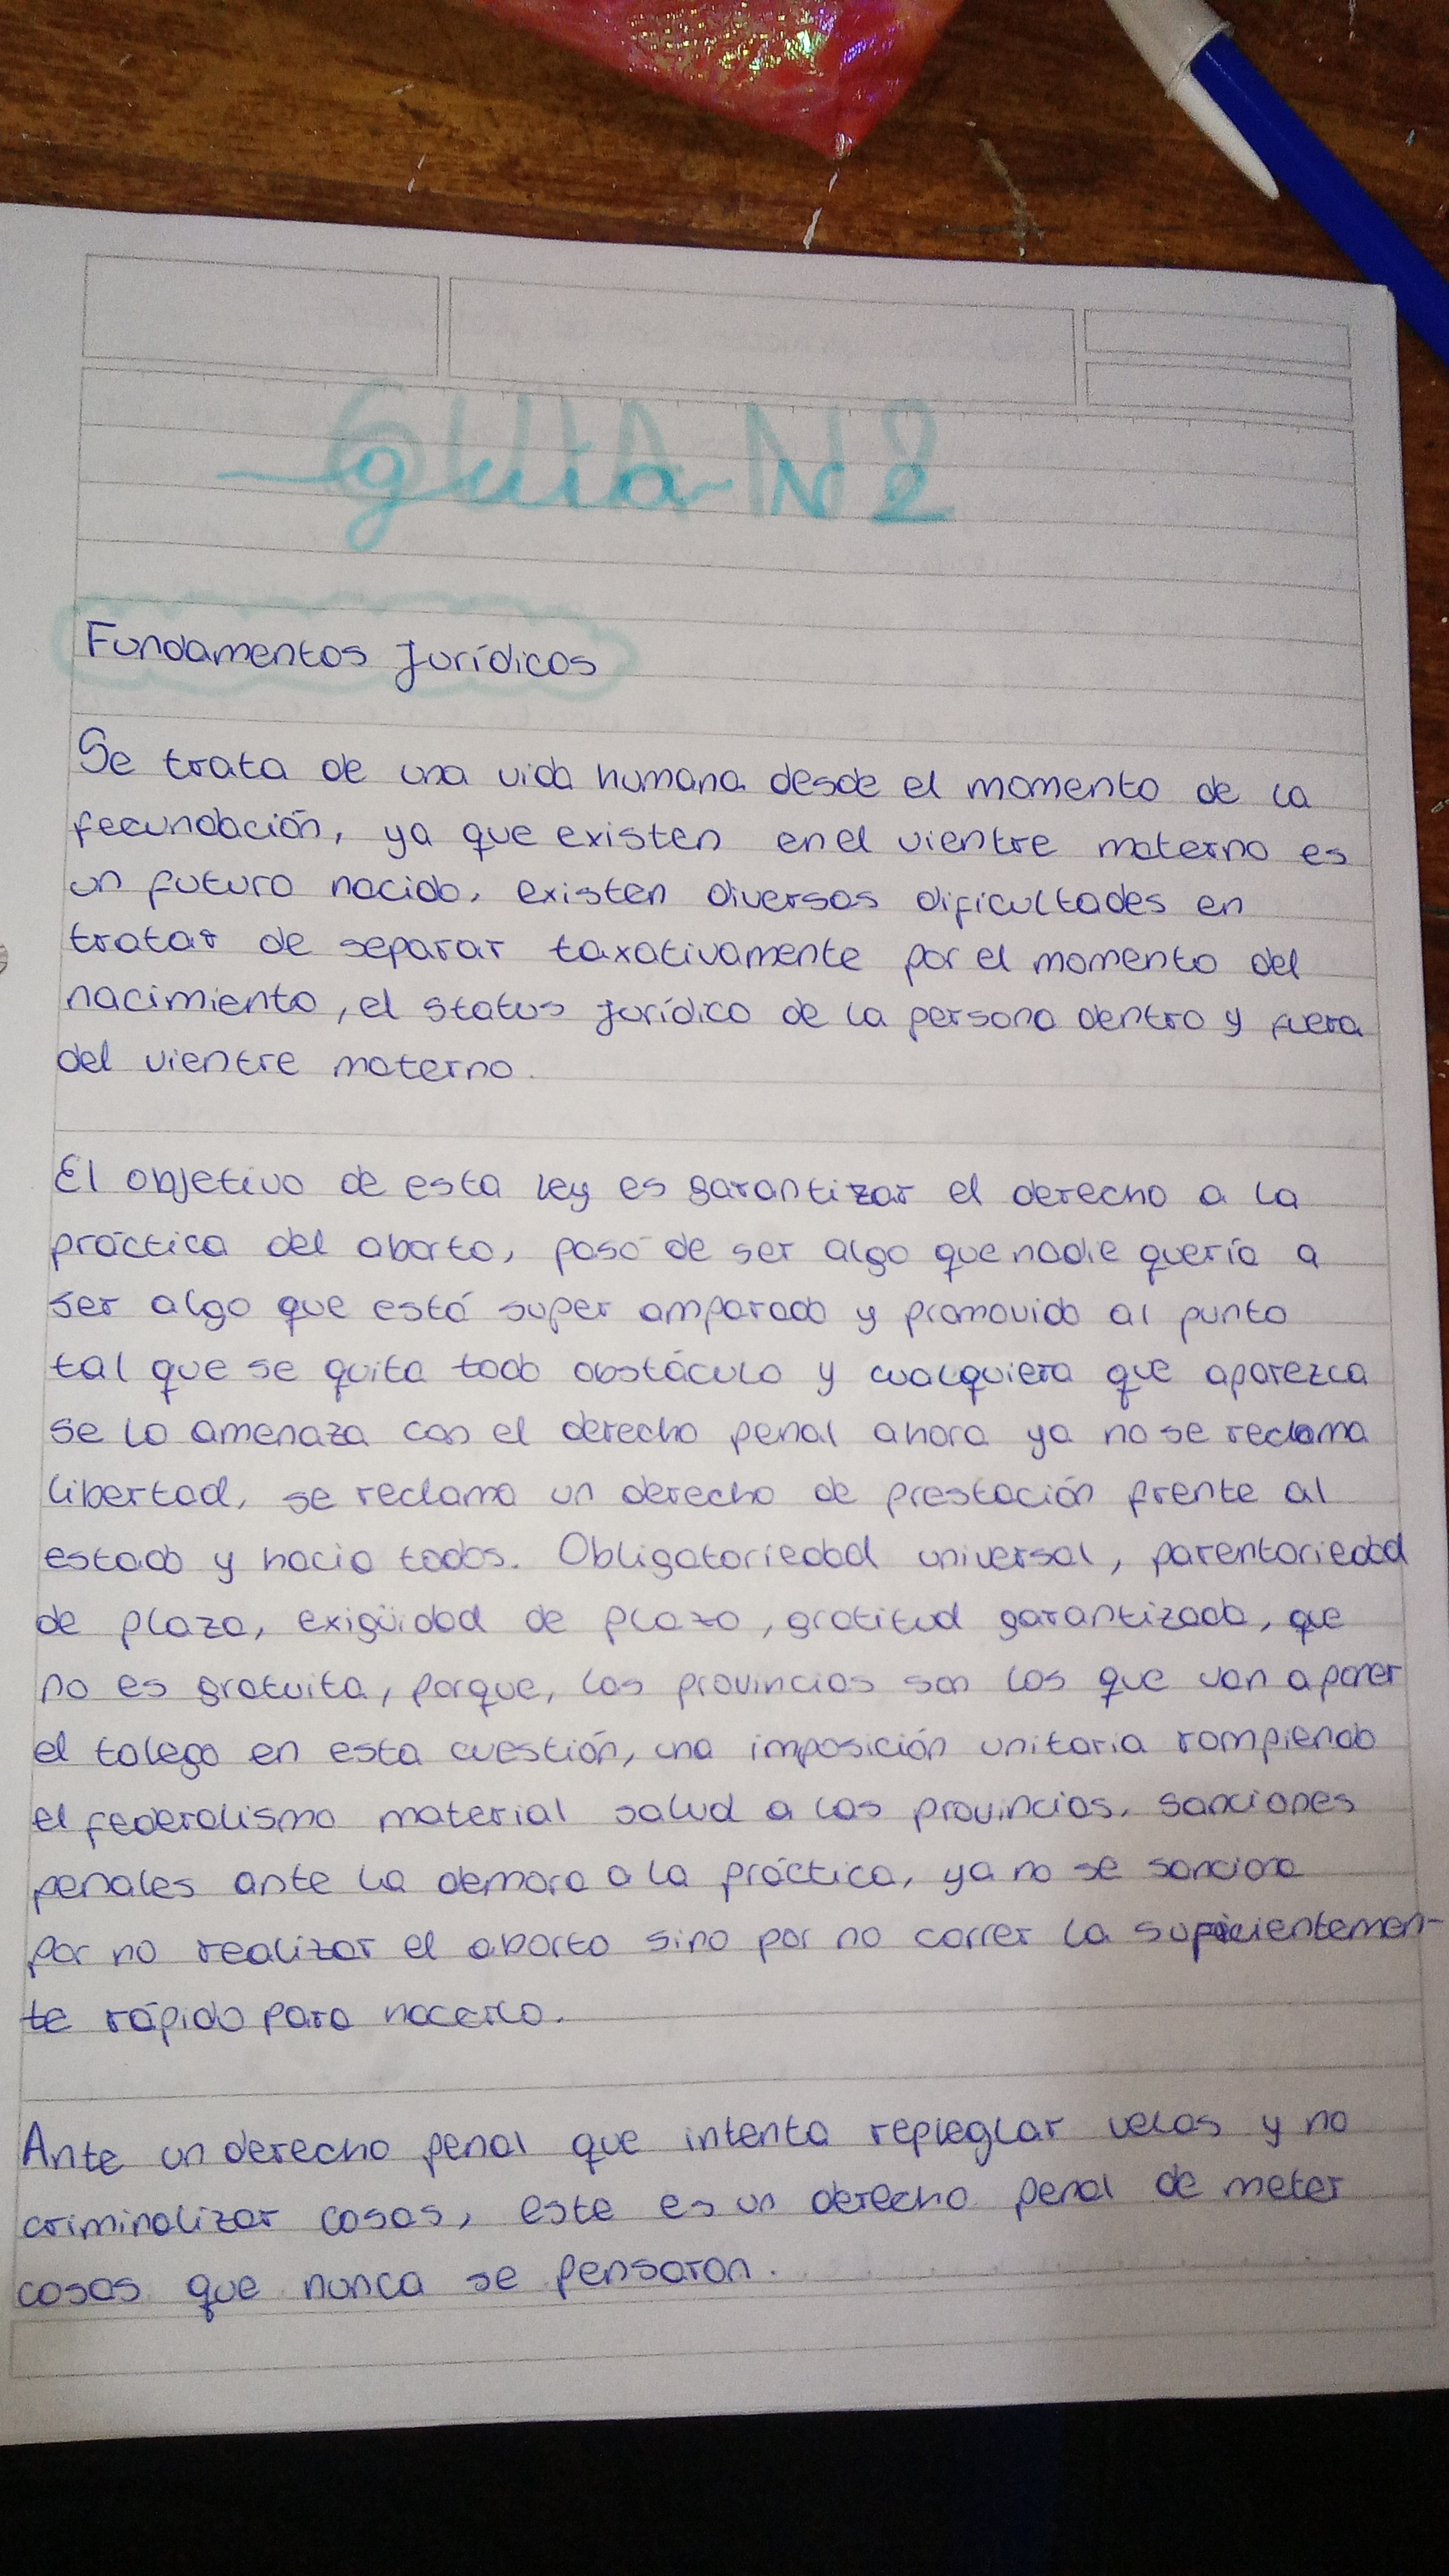 Guía N 2
Fundamentos Jurídicos
Se trata de una vida humana desde el momento de la
fecundación, ya que existen en el vientre materno es
un futuro nacido. existen diversas dificultades en
tratar de separar taxativamente por el momento del
nacimiento, el status jurídico de la persona dentro y fuera
del vientre materno.
El objetivo de esta ley es garantizar el derecho a la
práctica del aborto, pasó de ser algo que nadie quería a
ser algo que está super amparado y promovido al punto
tal que se quita todo obstáculo y cualquiera que aparezca
se lo amenaza con el derecho penal ahora ya no se reclama
libertad, se reclama un derecho de prestación frente al
estado y hacia todos. Obligatoriedad universal, parentoriedad
de plazo, exigüidad de plazo, gratitud garantizada, que
no es gratuita, porque, las provincias son los que van a poner
el talego en esta cuestión, una imposición unitaria rompiendo
el federalismo material salud a las provincias. sanciones
penales ante la demora a la práctica, ya no se sanciona
por no realizar el aborto sino por no correr la suficientemen-
te rápido para hacerlo.
Ante un derecho penal que intenta repleglar velas y no
criminalizar cosas, este es un derecho penal de meter
cosas que nunca se pensaron.